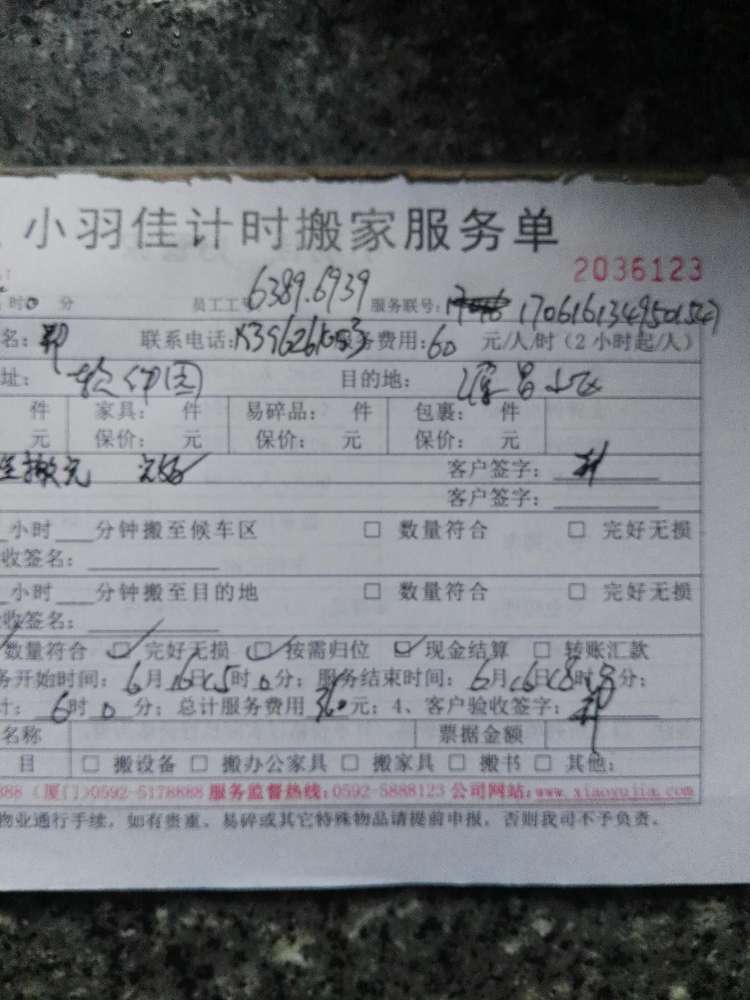 小羽佳计时搬家服务单
2036123
时0 分 员工工号 6389.6939 服务联号: 17061613495015
名: 联系电话: 服务费用: 60 元/人/时（2小时起/人）
址: 目的地: 小区
件 家具: 件 易碎品: 件 包裹: 件
元 保价: 元 保价: 元 保价: 元
搬完 完好 客户签字:
客户签字:
小时 分钟搬至候车区 □ 数量符合 □ 完好无损
收签名:
小时 分钟搬至目的地 □ 数量符合 □ 完好无损
收签名:
数量符合 ☑ 完好无损 ☑ 按需归位 ☑ 现金结算 □ 转账汇款
务开始时间: 6月16日15时0分; 服务结束时间: 6月16日18时 分;
计: 6时0分; 总计服务费用 360 元; 4、客户验收签字:
名称 票据金额
目 □ 搬设备 □ 搬办公家具 □ 搬家具 □ 搬书 □ 其他:
888（厦门）0592-5178888 服务监督热线: 0592-5888123 公司网站: www.xiaoyujia.com
物业通行手续，如有贵重、易碎或其它特殊物品请提前申报，否则我司不予负责。